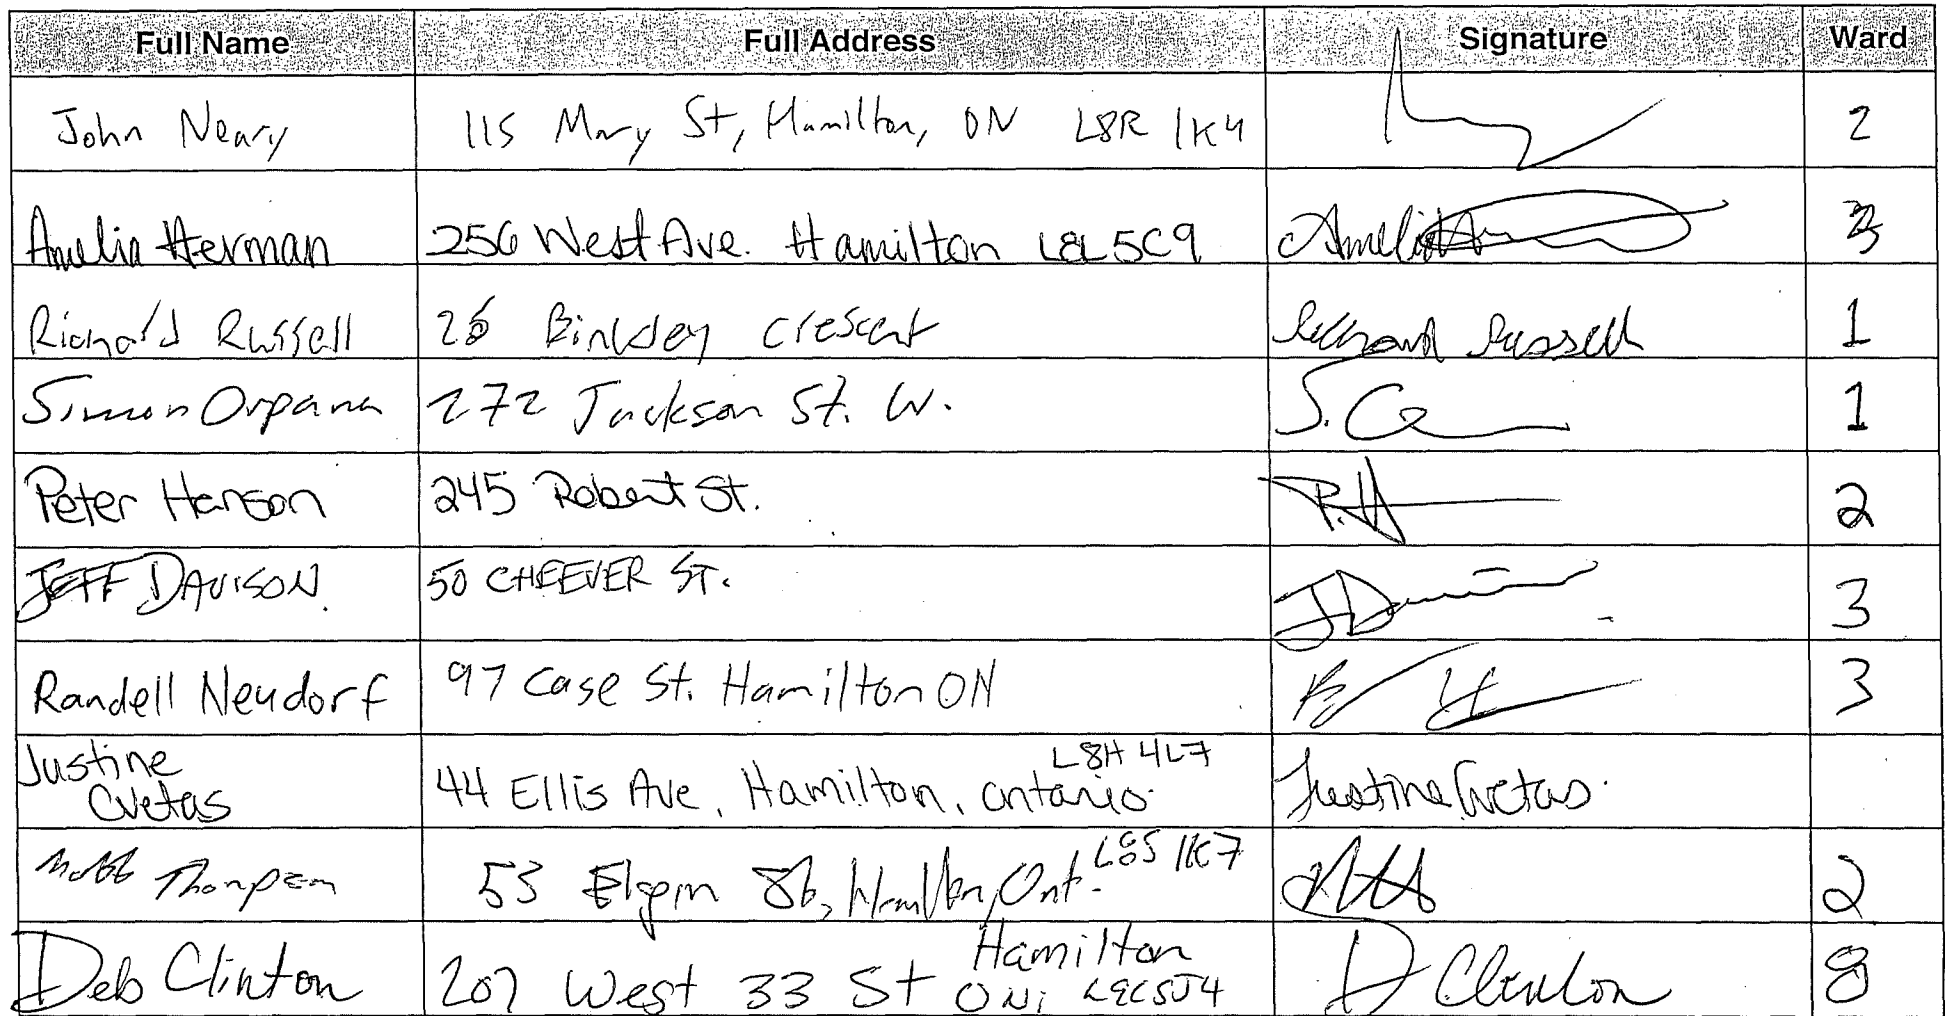 Full Name Full Address Signature Ward
John Neary 115 Mary St, Hamilton, ON L8R 1K4 2
Amelia Herman 256 West Ave. Hamilton L8L 5C9 Amelia 3
Richard Russell 26 Binkley Crescent Richard Russell 1
Simon Orpana 272 Jackson St. W. S. 1
Peter Hanson 245 Robert St. P.H 2
JEFF DAVISON. 50 CHEEVER ST. J D 3
Randell Neudorf 97 Case St. Hamilton ON 3
Justine L8H 4L7
Cvetas 44 Ellis Ave, Hamilton, Ontario. Justine Cvetas.
Matt Thompson 53 Elgin St, Hamilton, Ont. 1K7 2
Hamilton
Deb Clinton 207 West 33 St ON, D Clinton 8